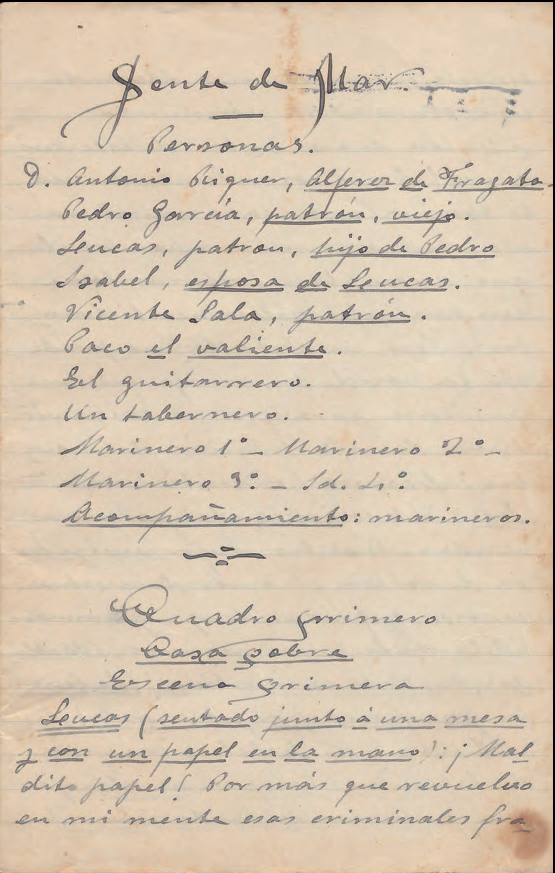 Gente de Mar.
Personas.
D. Antonio Riquer, Alferez de Fragata.
Pedro García, patrón, viejo.
Leucas, patron, hijo de Pedro
Isabel, esposa de Leucas.
Vicente Sala, patrón.
Paco el valiente.
El guitarrero.
Un tabernero.
Marinero 1º - Marinero 2º -
Marinero 3º - Id. 4º.
Acompañamiento: marineros.
Cuadro Primero
Casa pobre
Escena Primera
Leucas (sentado junto á una mesa
y con un papel en la mano): ¡Mal
dito papel! Por más que revuelvo
en mi mente esas criminales fra